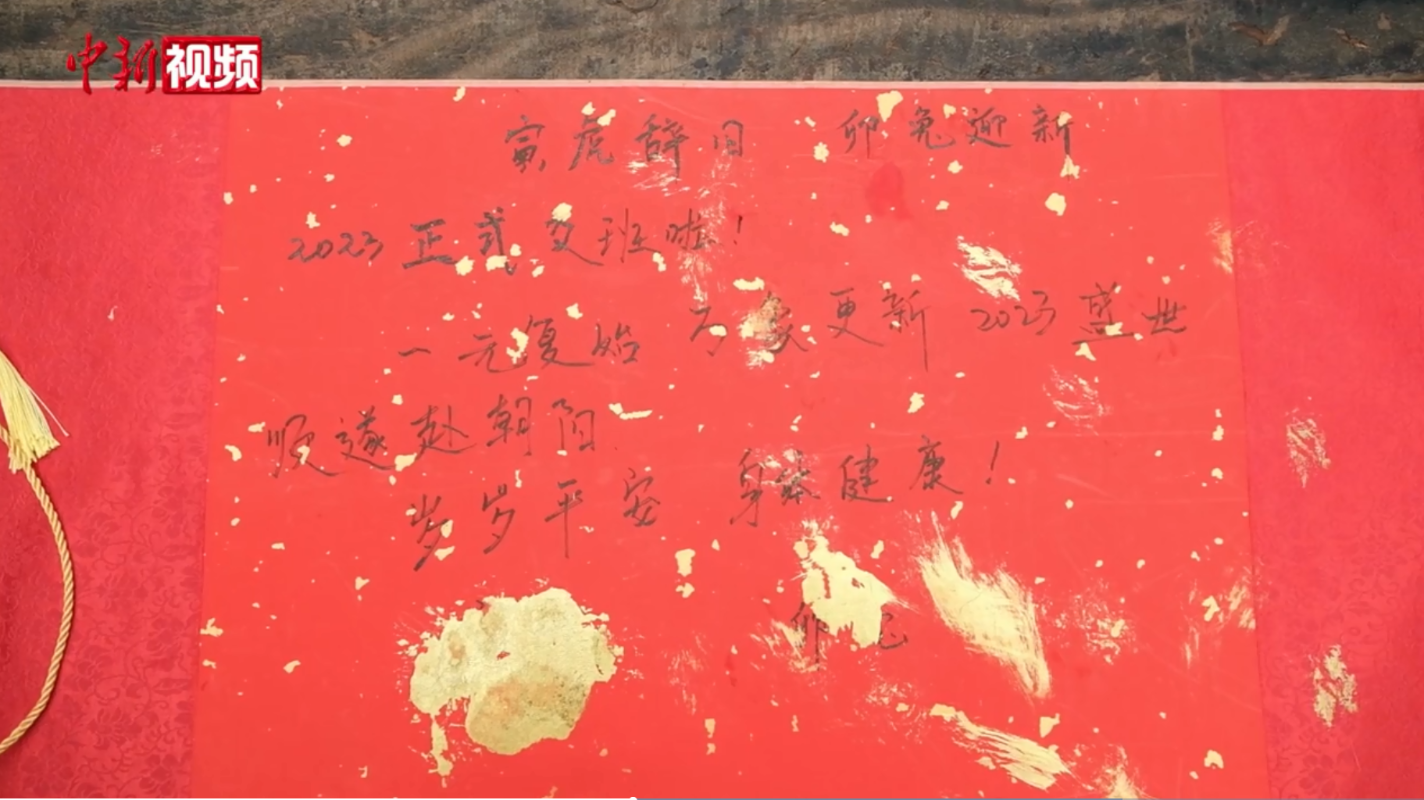 中新视频
寅虎辞旧 卯兔迎新
2023正式交班啦!
一元复始 万象更新 2023盛世
顺遂赴朝阳
岁岁平安 身体健康!
卯兔